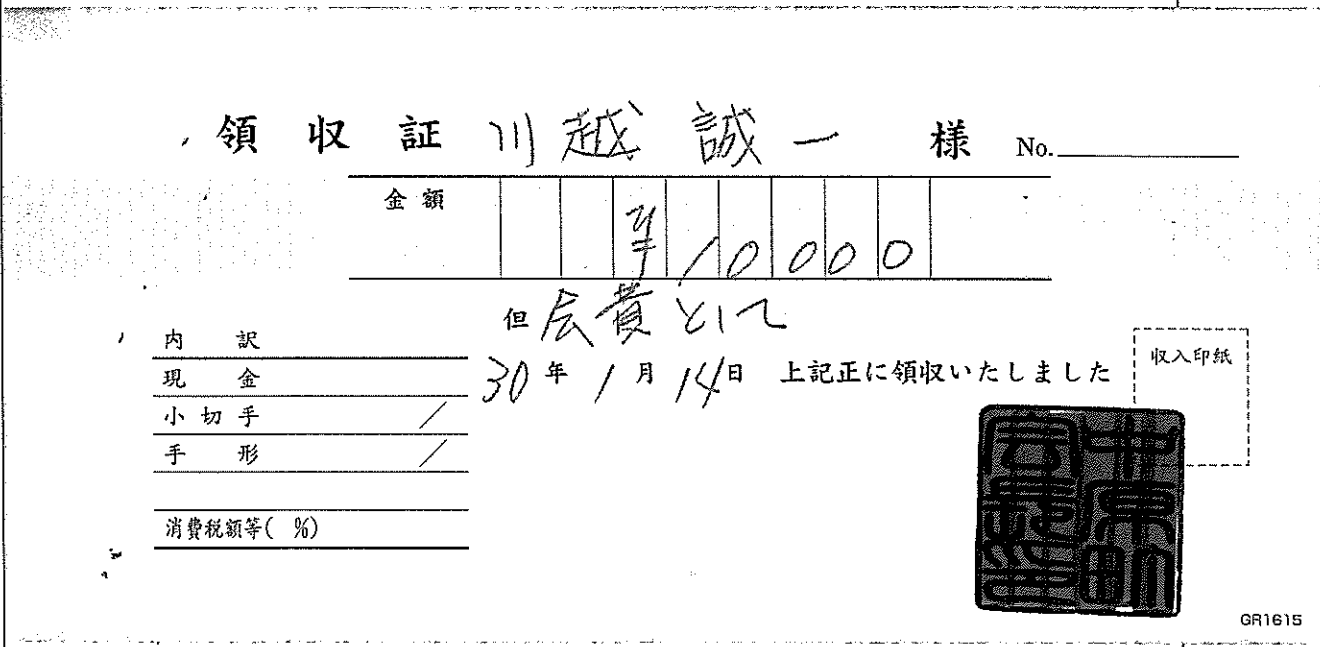 領収証 川越 誠一 様 No.
金額 ¥10000
但 会費として
30年1月14日 上記正に領収いたしました
収入印紙
内訳
現金
小切手 /
手形 /
消費税額等( %)
GR1615